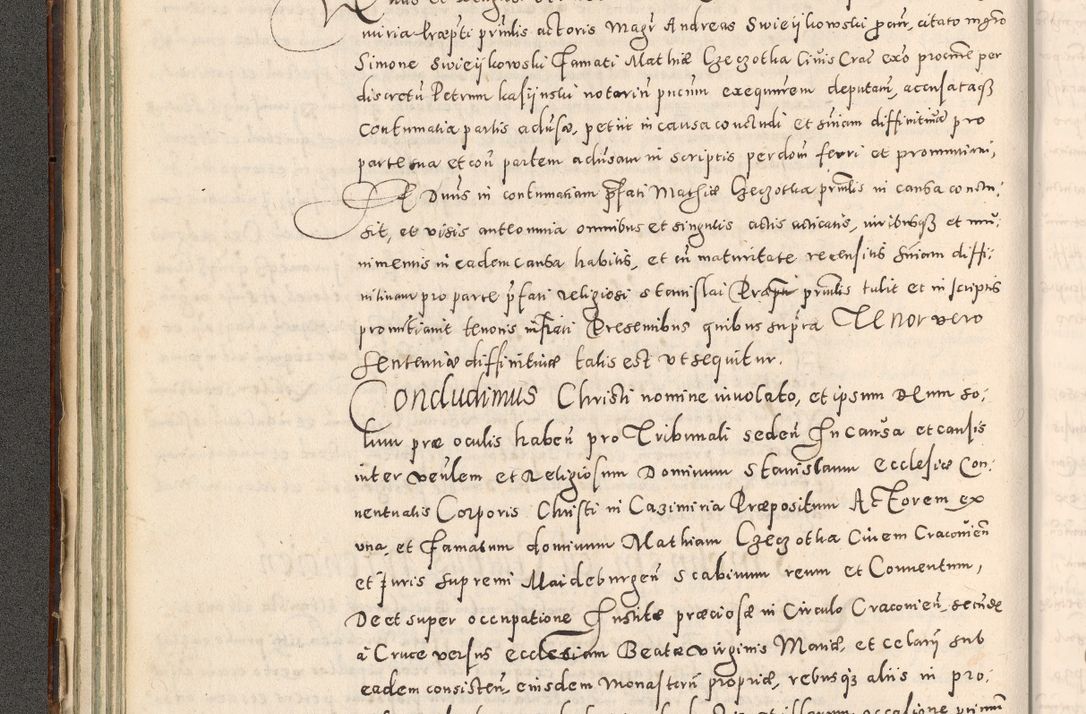 miria Præpti prnlis actoris Magr Andreas Swieijkowski pcur, citato mgro
Simone Swieijkowski Famati Mathiæ Czeczotka Ciuis Crac exo procure per
discretũ Petrum kasijnski notariũ pucum exequurem deputatũ, accusataqȝ
Contumatia partis aduse, petiit in causa concludi et sniam diffinitiuã pro
parte sua et con partem aduersam in scriptis per dom ferri et pronuntiari,
Et Dnus in contumatiam pfati Mathiæ Czeczotka prnlis in causa conclu:
sit, et visis anteomnia omnibus et singulis actis acticatis, iuribusqȝ et mu:
nimentis in eadem causa habitis, et cũ maturitate recensitis sniam diffi:
nitiuam pro parte pfati religiosi Stanislai Præpti prnlis tulit et in scriptis
promulgauit tenoris infrati Presentibus quibus supra Tenor vero
Sententiæ diffinitiuæ talis est vt sequitur.
Concludimus Christi nomine inuocato, et ipsum Deum so:
lum præ oculis haben pro Tribunali seden In causa et causis
inter venlem et Religiosum Dominum Stanislaum Ecclesiæ Con:
uentualis Corporis Christi in Cazimiria Præpositum Actorem ex
vna, et Famatum dominum Mathiam Czeczotka Ciuem Cracouien
et Juris supremi Maideburgen Scabinum reum et Conuentum,
De et super occupatione Insitæ præciosæ in Circulo Cracouien, secũdæ
à Cruce versus ecclesiam Beatæ virginis Mariæ, et celarij sub
eadem consisten, eiusdem Monasterij propriæ, rebusqȝ aliis in pro: